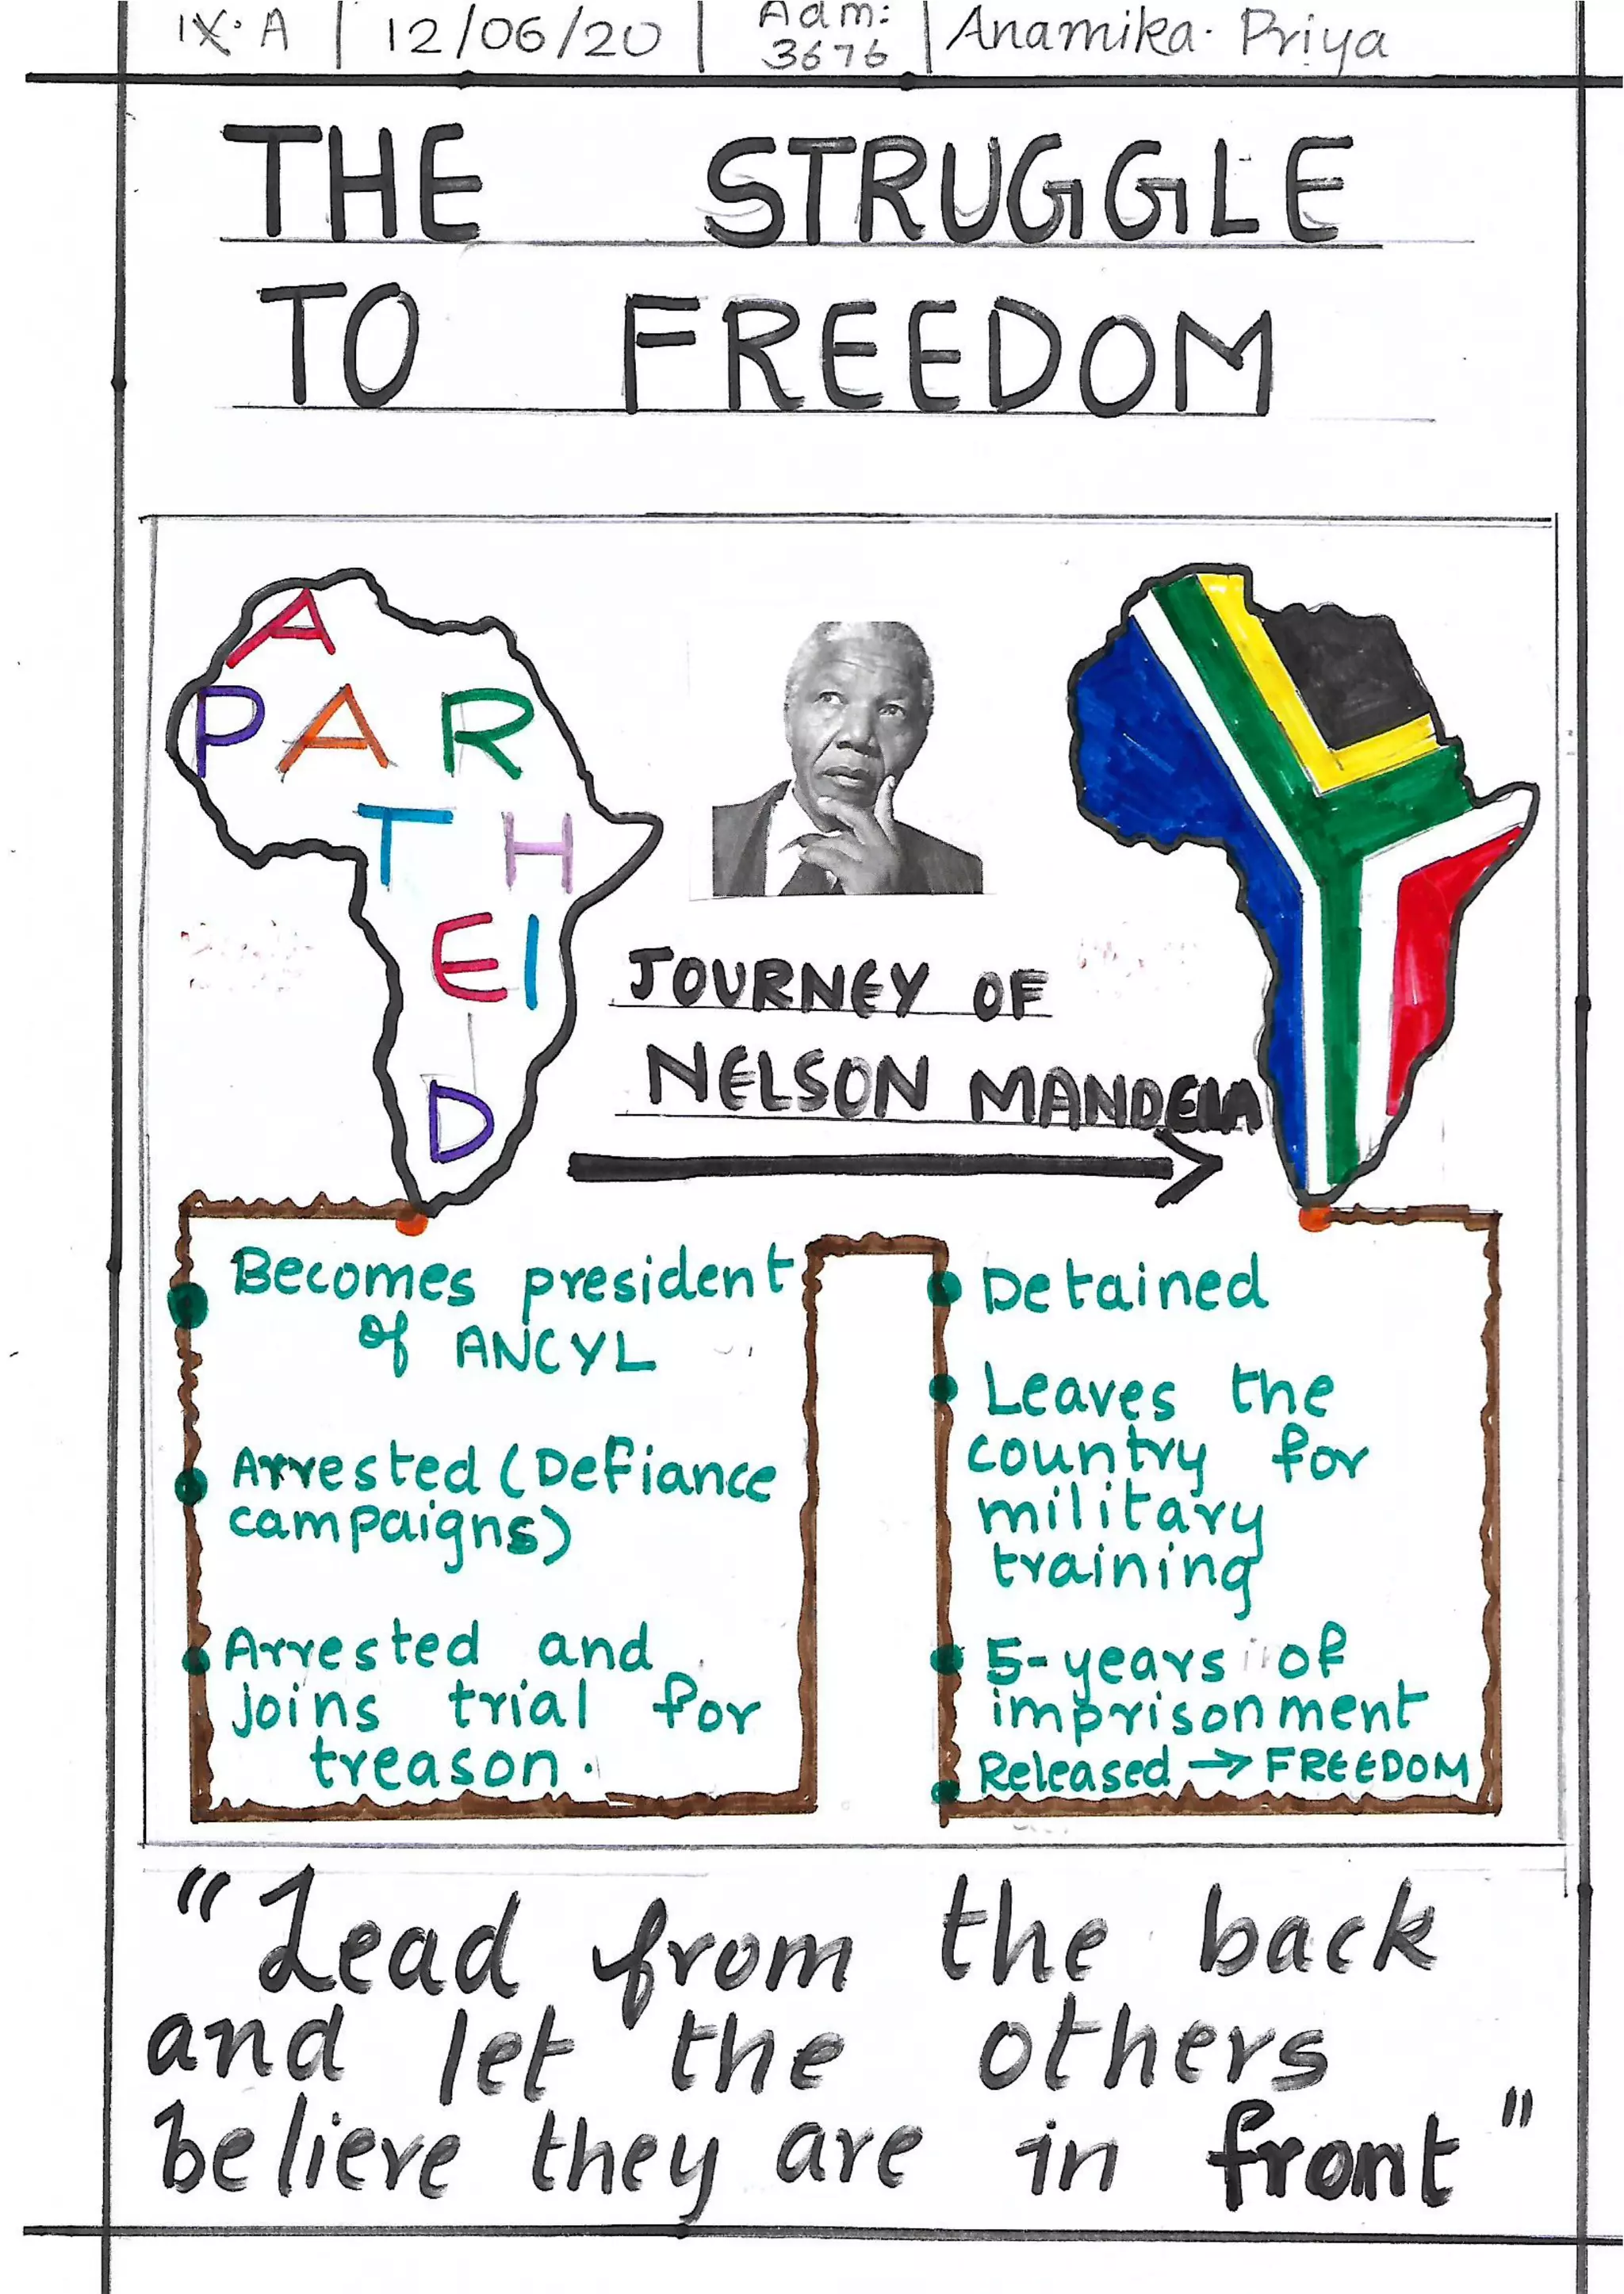 IX. A | 12/06/20 | Adm: 3676 | Anamika. Priya
THE STRUGGLE
TO FREEDOM
A
P A R
T H
E I
D
JOURNEY OF
NELSON MANDELA
Becomes president
of ANCYL
Arrested (Defiance
campaigns)
Arrested and
joins trial for
treason.
Detained
Leaves the
country for
military
training
5-years of
imprisonment
Released → FREEDOM
"Lead from the back
and let the others
believe they are in front"